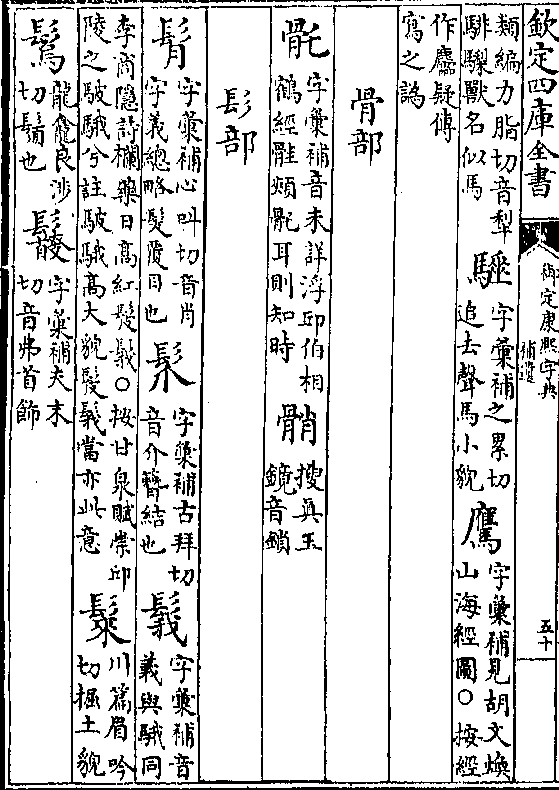 欽定四庫全書
御定康熙字典
補遺
五十
類編力脂切音犁
騑騥獸名似馬
字彙補之累切
追去聲馬小貌
字彙補見胡文煥
山海經圖○按經
作麢疑傳
寫之譌
骨部
骪字彙補音未詳浮邱伯相
鶴經骽頰骪耳則知時
䯚搜真玉
鏡音鎖
髟部
字彙補心叫切音肖
字義總略髮覆目也
字彙補古拜切
音介簪結也
字彙補音
義與駥同
李商隱詩欄藥日高紅髲䰀○按甘泉賦崇邱
陵之駊騀兮註駊騀高大貌髲䰀當亦此意
川篇眉吟
切掘土貌
龍龕良涉
切鬚也
字彙補夫末
切音弗首飾